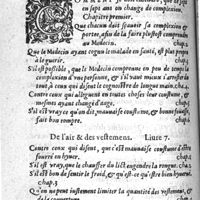 en sept ans on change de complexion.
Chapitre premier.
Que chacun doit sçauoir sa complexion, &
afin de la faire plustost comprendre
au Medecin. chap.2
Que le Medecin ayant cogneu le malade en santé, est plus
à le guerir. chap.3
S'il est possible, que le Medecin comprenne en peu de temps la
complexion d'vne personne, & s'il vaut mieux s'arrester
du tout à vn, que changer d'heure à autre. chap.4
Contre ceux qui alleguent en toutes choses leur coustume, &
mesmes ayant changé d'aage. chap.5
S'il est vray ce qu'on dit mauuaise coustume, & bonne,
fait bon rompre. chap.
De l'air & des vestemens. Liure 7.
Contre ceux qui disent, que c'est mauuaise coustume d'estre
fourré en hyuer. Chap.
S'il est vray, que le chauffer du lict engendre la rongne. chap.
S'il est bon de sentir le froid, & qu'est-ce qu'estre bien hyuerné.
Chap.3
Qu'on ne peut iustement limiter la quantité des vestemens, &
de la couuerture